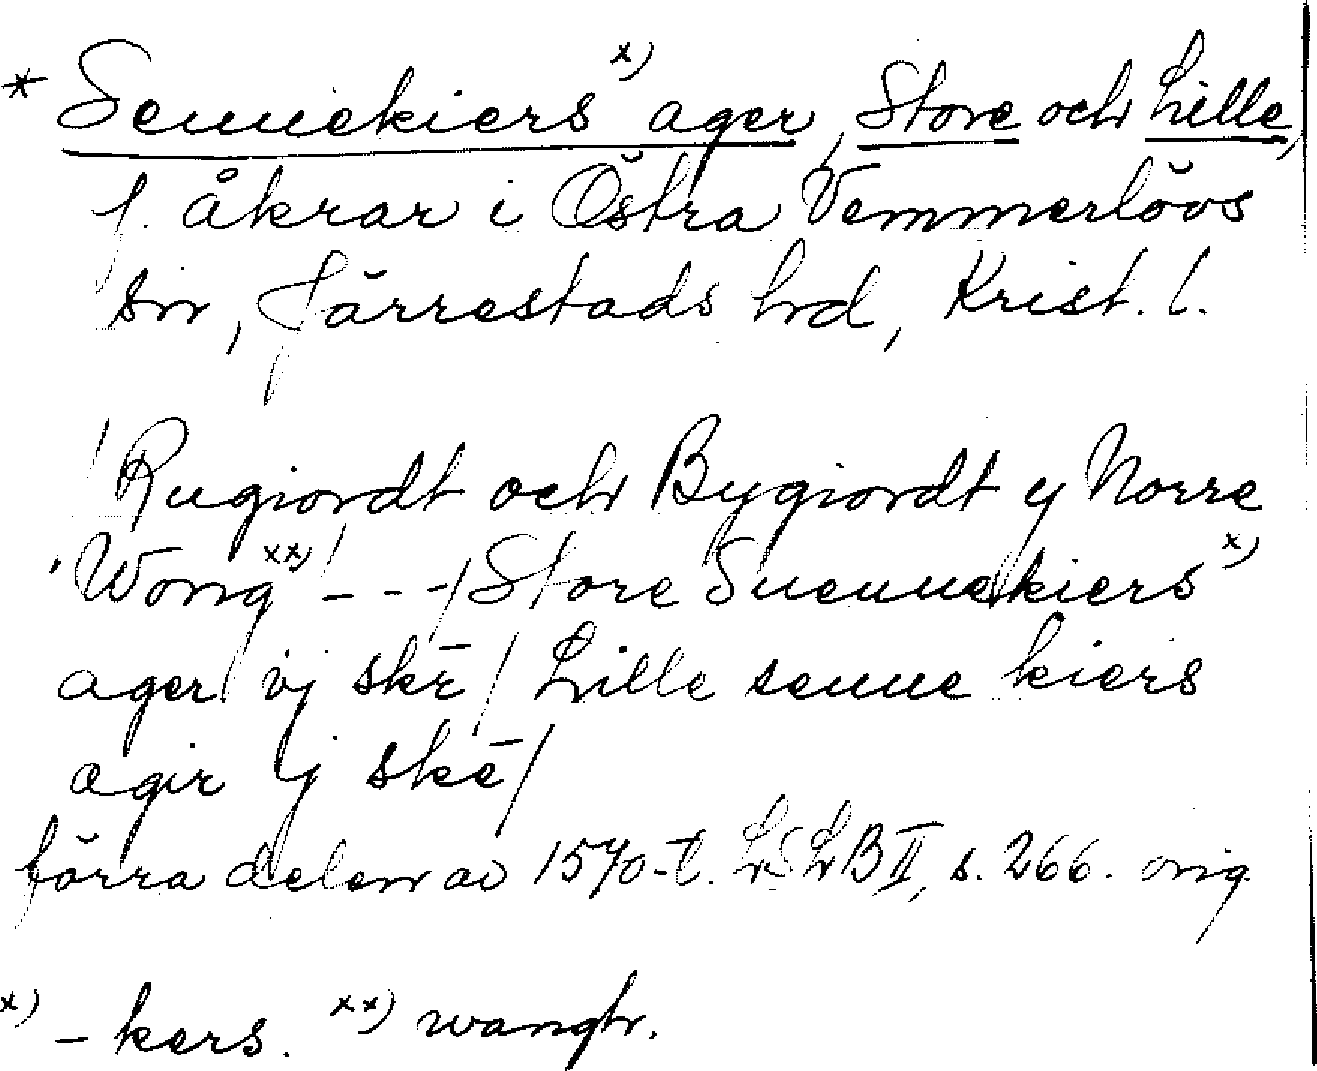 * Sennekiers x) ager, Store och Lille,
f. åkrar i Östra Vemmerlövs
sn, Järrestads hd, Krist. l.
/ Rugiordt och Bygiordt y Norre
Wong xx) / - - - / Store Suennekiers x)
ager vj skē / Lille senne kiers
agir ij skē /
förra delen av 1570-t. LSLB II, s. 266. orig.
x) - kers. xx) wangh.